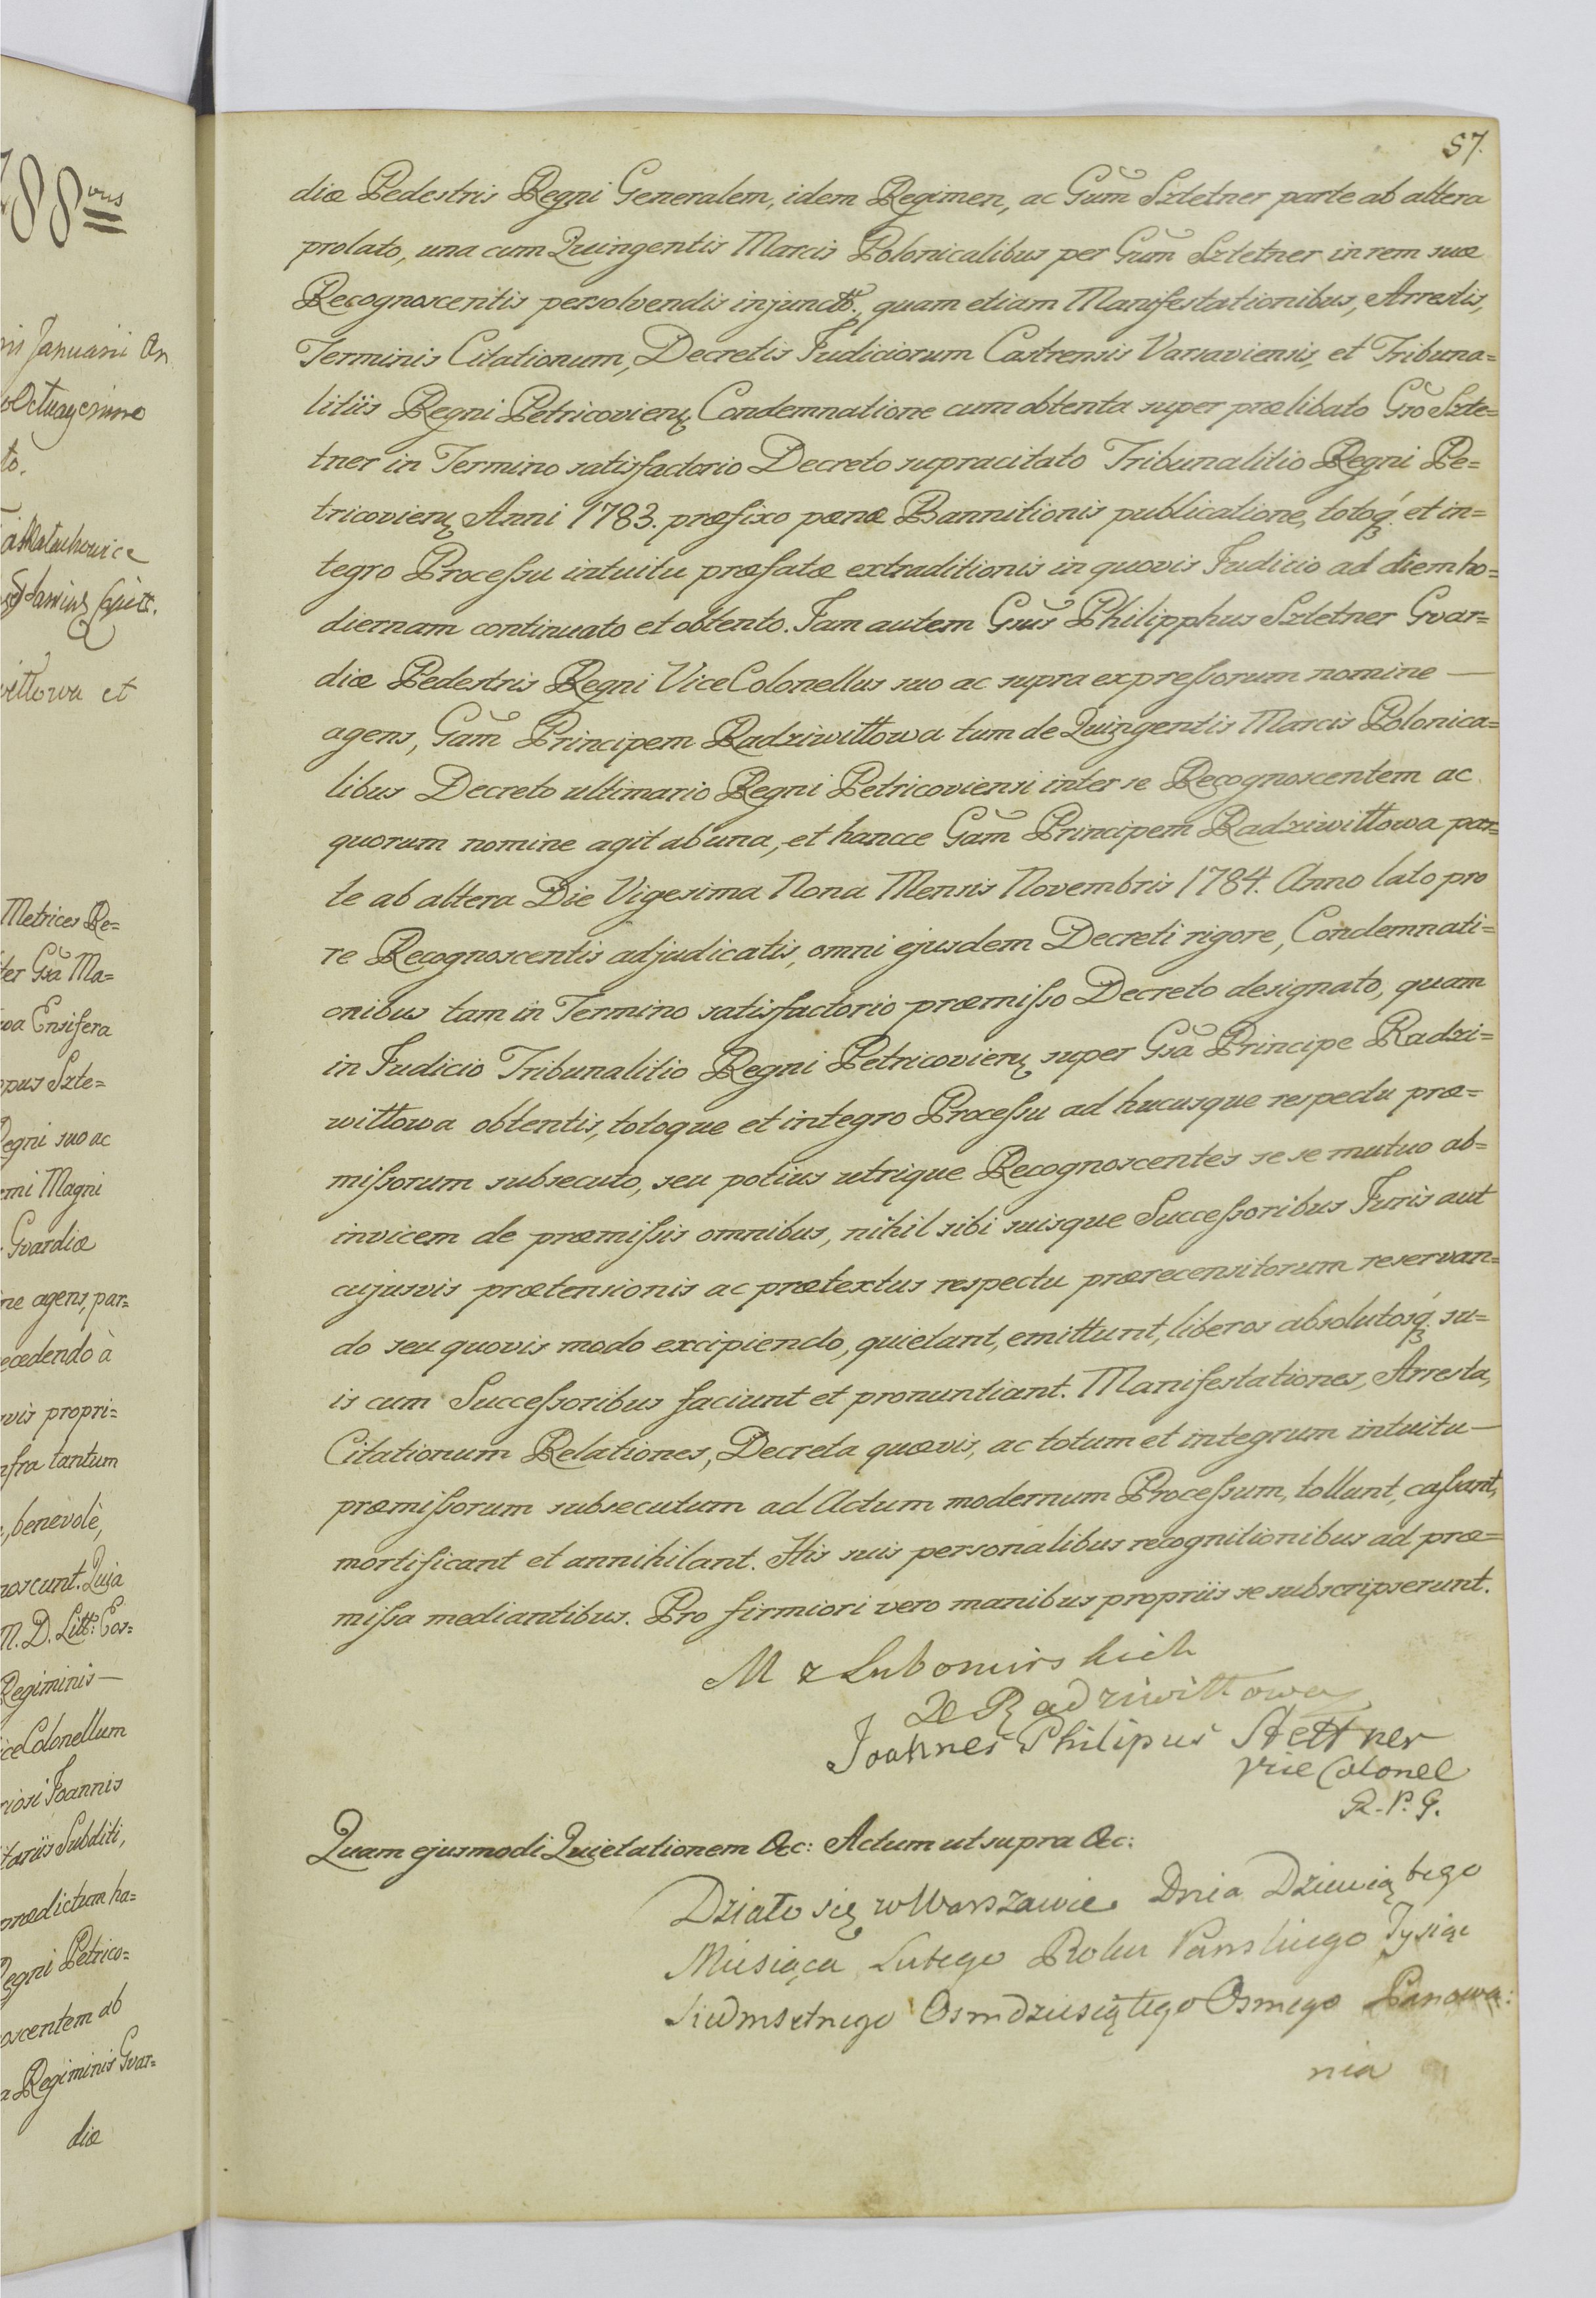 788vus
nis Januarii An
Octuagesimo
to.
wittowa et
Metrices Re=
ter Gsã Ma=
wa Ensifera
ppus Szte=
Regni suo ac
emi Magni
Gvardiæ
ne agens, par=
ecedendo à
vis propri=
nfra tantum
, benevolè,
noscunt. Quia
N. D. Litt: Cos=
Regiminis —
iceColonellum
riosi Joannis
itariis Subditi,
prædictum ha=
Regni Petrico=
oscentem ab
a Regiminis Gvar=
diæ
57.
diæ Pedestris Regni Generalem, idem Regimen, ac Gum̃ Sztetner parte ab altera
prolato, una cum Quingentis Marcis Polonicalibus per Gum̃ Sztetner in rem suæ
Recognoscentis persolvendis injunctõ., quam etiam Manifestationibus, Arrestis,
Terminis Citationum, Decretis Judiciorum Castrensis Varsaviensis, et Tribuna=
litiis Regni Petricovienę Condemnatione cum obtenta super prælibato Gsõ Szte=
tner in Termino satisfactorio Decreto supracitato Tribunalitio Regni Pe=
tricovienę Anni 1783. præfixo pænæ Bannitionis publicatione, totoq́ꝫ et in=
tegro Processu intuitu præfatæ extraditionis in quovis Judicio ad diem ho=
diernam continuato et obtento. Jam autem Gsus̃ Philipphus Sztetner Gvar=
diæ Pedestris Regni ViceColonellus suo ac supra expressorum nomine —
agens, Gam̃ Principem Radziwittowa tum de Quingentis Marcis Polonica=
libus Decreto ultimario Regni Petricoviensi inter se Recognoscentem ac
quorum nomine agit ab una, et hancce Gam̃ Principem Radziwittowa par=
te ab altera Die Vigesima Nona Mensis Novembris 1784. Anno lato pro
re Recognoscentis adjudicatis, omni ejusdem Decreti rigore, Condemnati=
onibus tam in Termino satisfactorio præmisso Decreto designato, quam
in Judicio Tribunalitio Regni Petricovienę super Gsã Principe Radzi=
wittowa obtentis, totoque et integro Processu ad hucusque respectu præ=
missorum subsecuto, seu potius utrique Recognoscentes se se mutuo ab=
invicem de præmissis omnibus, nihil sibi suisque Successoribus Juris aut
cujusvis prætensionis ac prætextus respectu prærecensitorum reservan=
do seu quovis modo excipiendo, quietant, emittunt, liberos absolutosq́ꝫ su=
is cum Successoribus faciunt et pronuntiant. Manifestationes, Arresta,
Citationum Relationes, Decreta quævis, ac totum et integrum intuitu —
præmissorum subsecutum ad Actum modernum Processum, tollunt, cassant,
mortificant et annihilant. His suis personalibus recognitionibus ad præ=
missa mediantibus. Pro firmiori vero manibus propriis se subscripserunt.
M z Lubomirskich
X Radziwittowa
Joannes Philipus Stettner
Vice Colonel
R. P. G.
Quam ejusmodi Quietationem &c: Actum ut supra &c:
Działo się w Warszawie Dnia Dziewiątego
Miesiąca Lutego Roku Panskiego Tysiąc
Siedmsetnego Osmdziesiątego Osmego Panowa:
nia